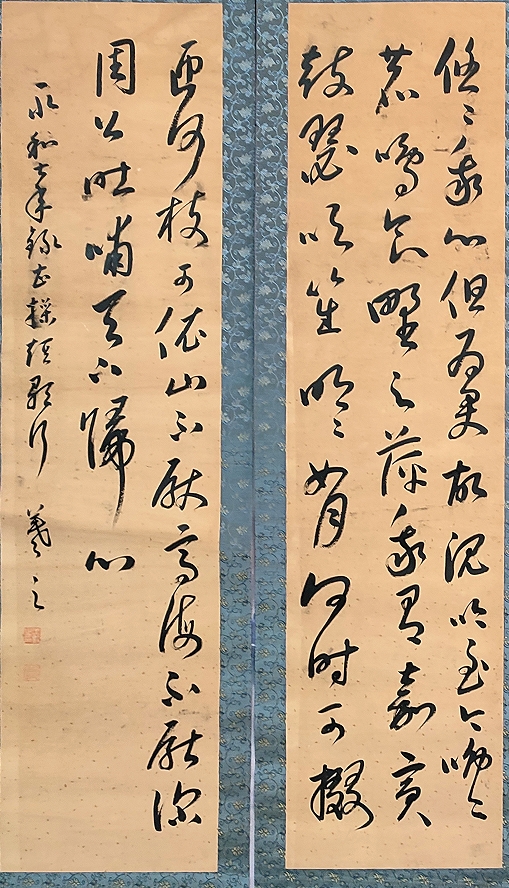 悠々我心但為君故沈吟至今呦々
鹿鳴食野之苹我有嘉賓
鼓瑟吹笙明々如月何時可掇
匝何枝可依山不厭高海不厭深
周公吐哺天下歸心
永和十二年録曹操短歌行 羲之